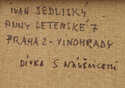 IVAN SEDLISKÝ
ANNY LETENSKÉ 7
PRAHA 2 - VINOHRADY
DÍVKA S NÁUŠNICEMI